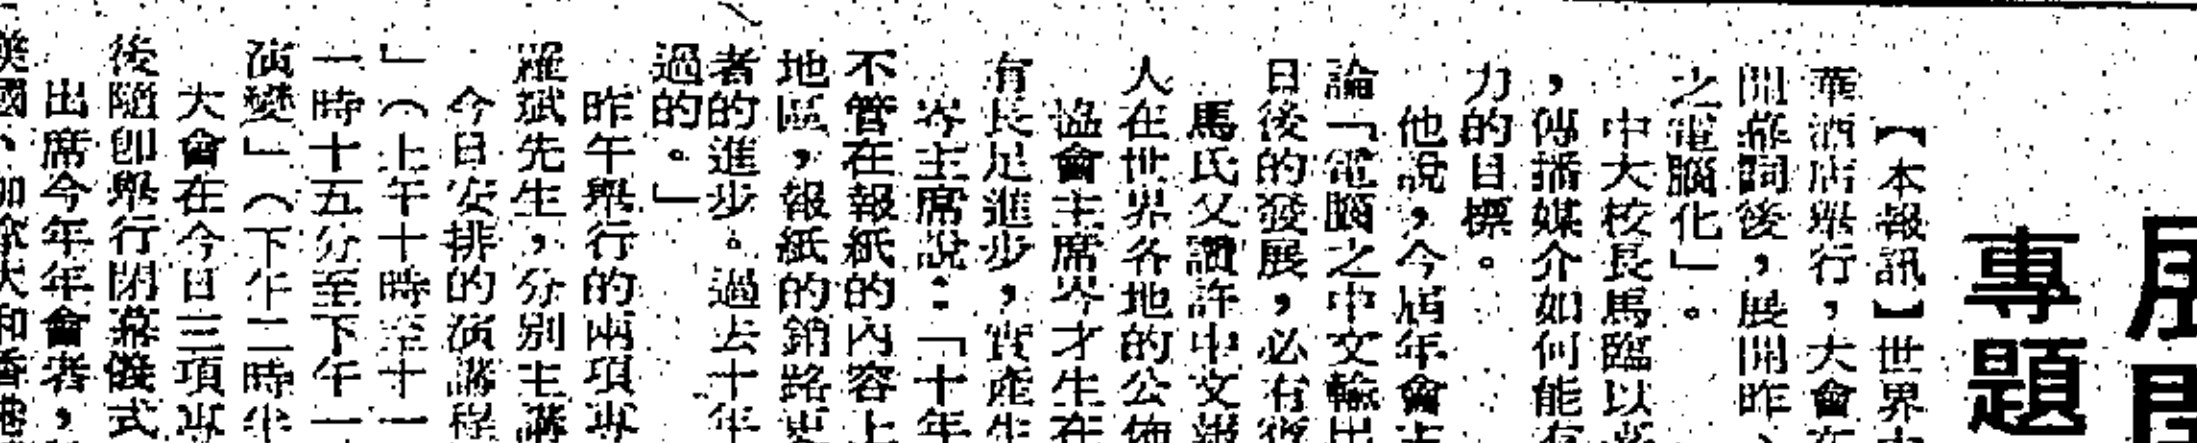 專題
【本報訊】世界
華酒店舉行，大會在
開幕詞後，展開昨、
之電腦化」。
中大校長馬臨以
，傳播媒介如何能有
力的目標。
他說，今屆年會
論「電腦之中文輸出
日後的發展，必有
馬氏又讚許中文報
人在世界各地的公
協會主席岑才生在
有長足進步，實產生
岑主席說：「十年
不管在報紙的內容上
地區，報紙的銷路更
者的進步。過去十年
過的。」
昨午舉行的兩項專
羅斌先生，分別主講
今日安排的演講程
」（上午十時至十一
一時十五分至下午一
演變」（下午二時半
大會在今日三項專
後隨即舉行閉幕儀式
出席今年年會者，
美國、加拿大和香港